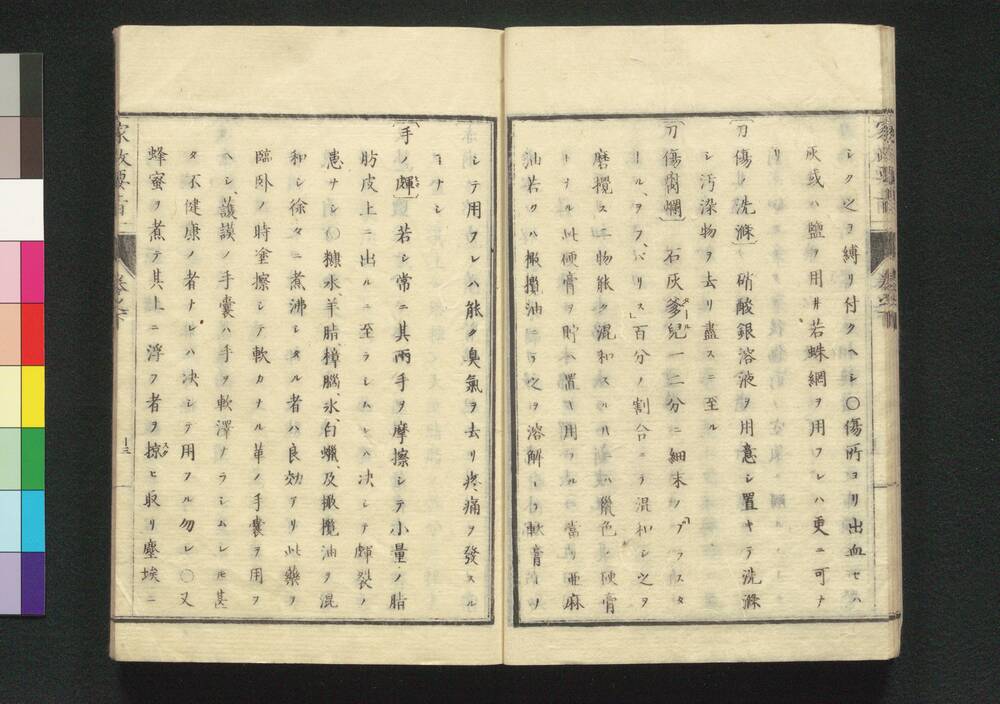 シク之ヨ縛リ付クヘシ〇傷所ヨリ出血セハ
灰或ハ鹽ヲ用井若蛛網ヲ用フレハ更ニ可ナ
リ
〔刀傷ノ洗滌〕硝酸銀溶液ヲ用意シ置キテ洗滌
シ汚染物ヲ去リ盡スニ至ル
〔刀傷腐爛〕石灰爹兒一二分ニ細末ノ「プラスタ
ール、ヲフ、パリス」百分ノ割合ニテ混和シ之ヲ
磨攪スニ物能ク混和スルハ鼠色ノ硬膏
トナル此硬膏ヲ貯ヘ置キ用フル當リ亜麻
油若クハ橄欖油ニテ之ヲ溶解シテ軟膏トナ
シテ用フレハ能ク臭氣ヲ去リ疼痛ヲ發スル
ヿナシ
〔手ノ皹〕若シ常ニ其兩手ヲ摩擦シテ小量ノ脂
肪皮上ニ出ルニ至ラシムレハ決シテ皹裂ノ
患ナシ〇糠水、羊脂、樟腦、氷、白蠟、及橄欖油ヲ混
和シ徐々ニ煮沸シタル者ハ良効アリ此藥ヲ
臨臥ノ時塗擦シテ軟カナル革ノ手囊ヲ用フ
ヘシ、護謨ノ手囊ハ手ヲ軟澤ナラシムレ𪜈甚
タ不健康ノ者ナレハ決シテ用フル勿レ〇又
蜂蜜ヲ煮テ其上ニ浮フ者ヲ掠ヒ取リ塵埃ニ
家政要旨 卷之下
十三